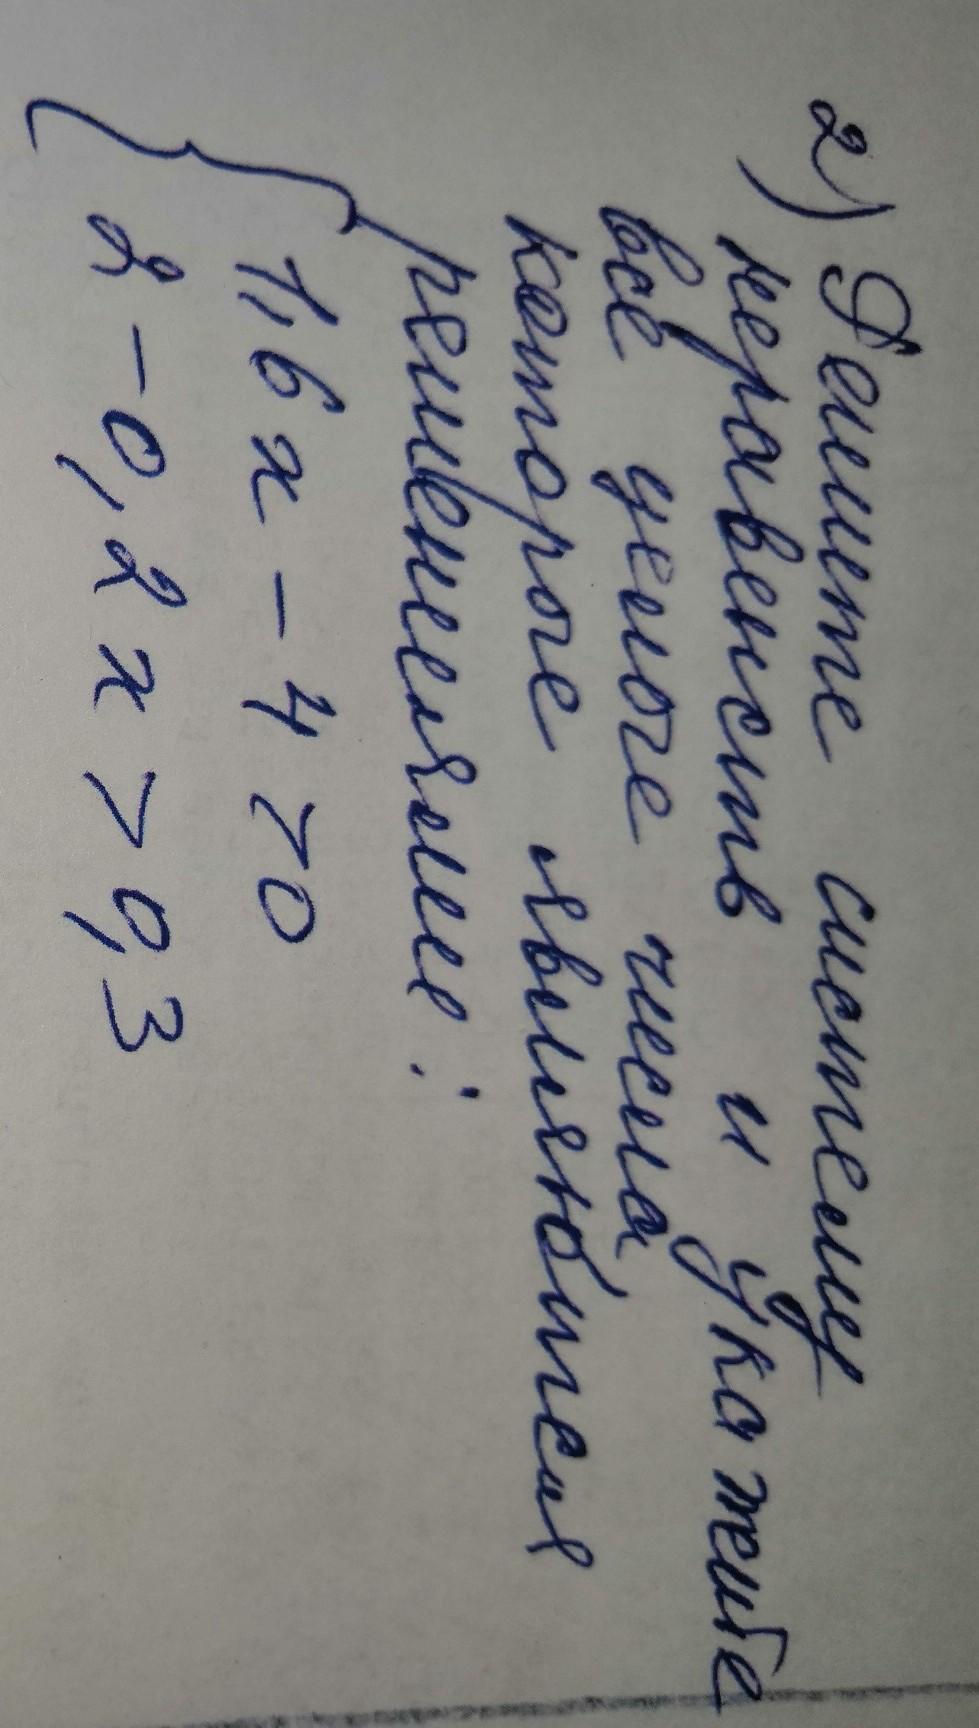 2) Решите систему
неравенств и укажите
все целые числа
которые являются
решениями:
1,6x - 4 > 0
2 - 0,2x > 0,3